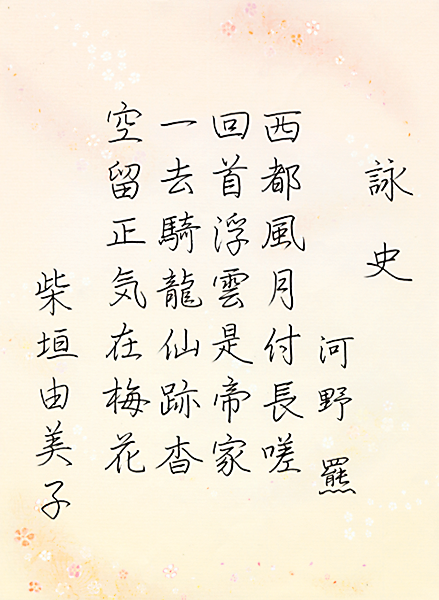 詠史
河野 羆
西都風月付長嗟
回首浮雲是帝家
一去騎龍仙跡杳
空留正気在梅花
柴垣由美子